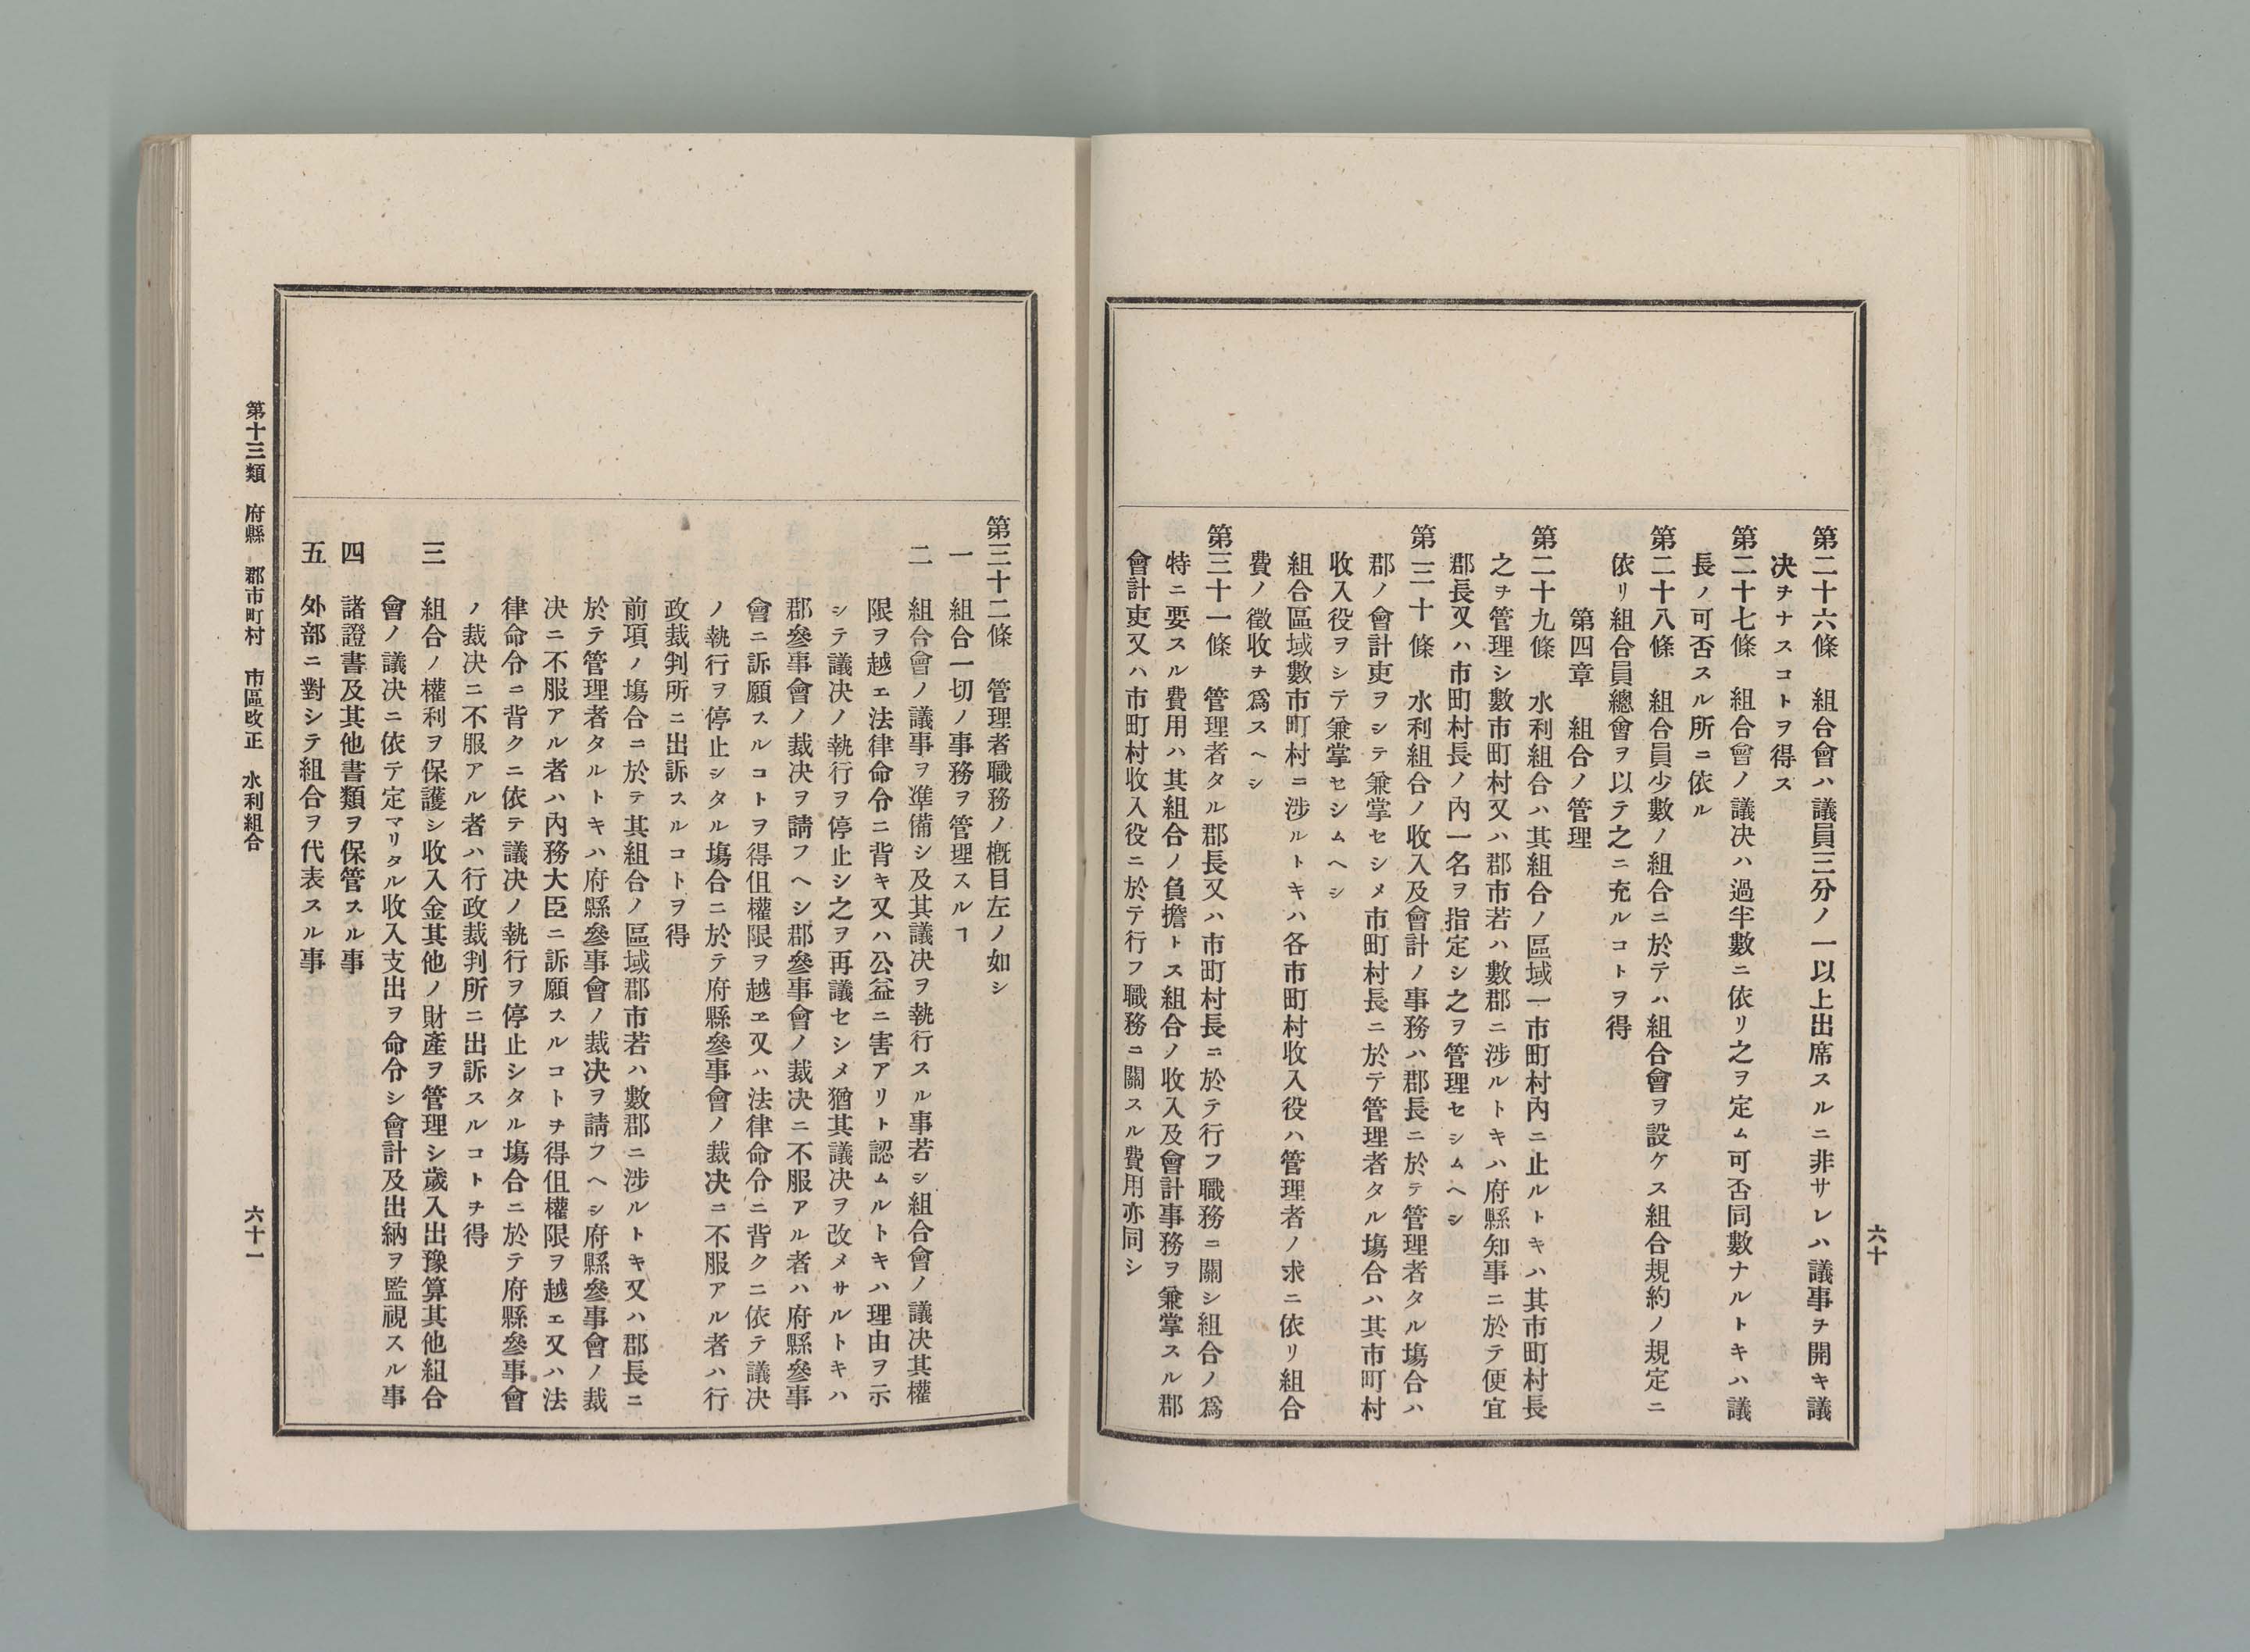 第二十六條　組合會ハ議員三分ノ一以上出席スルニ非サレハ議事ヲ開キ議
決ヲナスコトヲ得ス
第二十七條　組合會ノ議决ハ過半數ニ依リ之ヲ定ム可否同數ナルトキハ議
長ノ可否スル所ニ依ル
第二十八條　組合員少數ノ組合ニ於テハ組合會ヲ設ケス組合規約ノ規定ニ
依リ組合員總會ヲ以テ之ニ充ルコトヲ得
第四章　組合ノ管理
第二十九條　水利組合ハ其組合ノ區域一市町村內ニ止ルトキハ其市町村長
之ヲ管理シ數市町村又ハ郡市若ハ數郡ニ涉ルトキハ府縣知事ニ於テ便宜
郡長又ハ市町村長ノ內一名ヲ指定シ之ヲ管理セシムヘシ
第三十條　水利組合ノ收入及會計ノ事務ハ郡長ニ於テ管理者タル塲合ハ
郡ノ會計吏ヲシテ兼掌セシメ市町村長ニ於テ管理者タル塲合ハ其市町村
收入役ヲシテ兼掌セシムヘシ
組合區域數市町村ニ涉ルトキハ各市町村收入役ハ管理者ノ求ニ依リ組合
費ノ徵收ヲ爲スヘシ
第三十一條　管理者タル郡長又ハ市町村長ニ於テ行フ職務ニ關シ組合ノ爲
特ニ要スル費用ハ其組合ノ負擔トス組合ノ收入及會計事務ヲ兼掌スル郡
會計吏又ハ市町村收入役ニ於テ行フ職務ニ關スル費用亦同シ
六十
第三十二條　管理者職務ノ槪目左ノ如シ
一　組合一切ノ事務ヲ管理スルヿ
二　組合會ノ議事ヲ準備シ及其議决ヲ執行スル事若シ組合會ノ議决其權
限ヲ越エ法律命令ニ背キ又ハ公益ニ害アリト認ムルトキハ理由ヲ示
シテ議决ノ執行ヲ停止シ之ヲ再議セシメ猶其議决ヲ改メサルトキハ
郡參事會ノ裁决ヲ請フヘシ郡參事會ノ裁决ニ不服アル者ハ府縣參事
會ニ訴願スルコトヲ得但權限ヲ越ヱ又ハ法律命令ニ背クニ依テ議决
ノ執行ヲ停止シタル塲合ニ於テ府縣參事會ノ裁决ニ不服アル者ハ行
政裁判所ニ出訴スルコトヲ得
前項ノ塲合ニ於テ其組合ノ區域郡市若ハ數郡ニ涉ルトキ又ハ郡長ニ
於テ管理者タルトキハ府縣參事會ノ裁决ヲ請フヘシ府縣參事會ノ裁
决ニ不服アル者ハ內務大臣ニ訴願スルコトヲ得但權限ヲ越エ又ハ法
律命令ニ背クニ依テ議决ノ執行ヲ停止シタル塲合ニ於テ府縣參事會
ノ裁决ニ不服アル者ハ行政裁判所ニ出訴スルコトヲ得
三　組合ノ權利ヲ保護シ收入金其他ノ財產ヲ管理シ歲入出豫算其他組合
會ノ議决ニ依テ定マリタル收入支出ヲ命令シ會計及出納ヲ監視スル事
四　諸證書及其他書類ヲ保管スル事
五　外部ニ對シテ組合ヲ代表スル事
第十三類　府縣　郡市町村　市區改正　水利組合
六十一